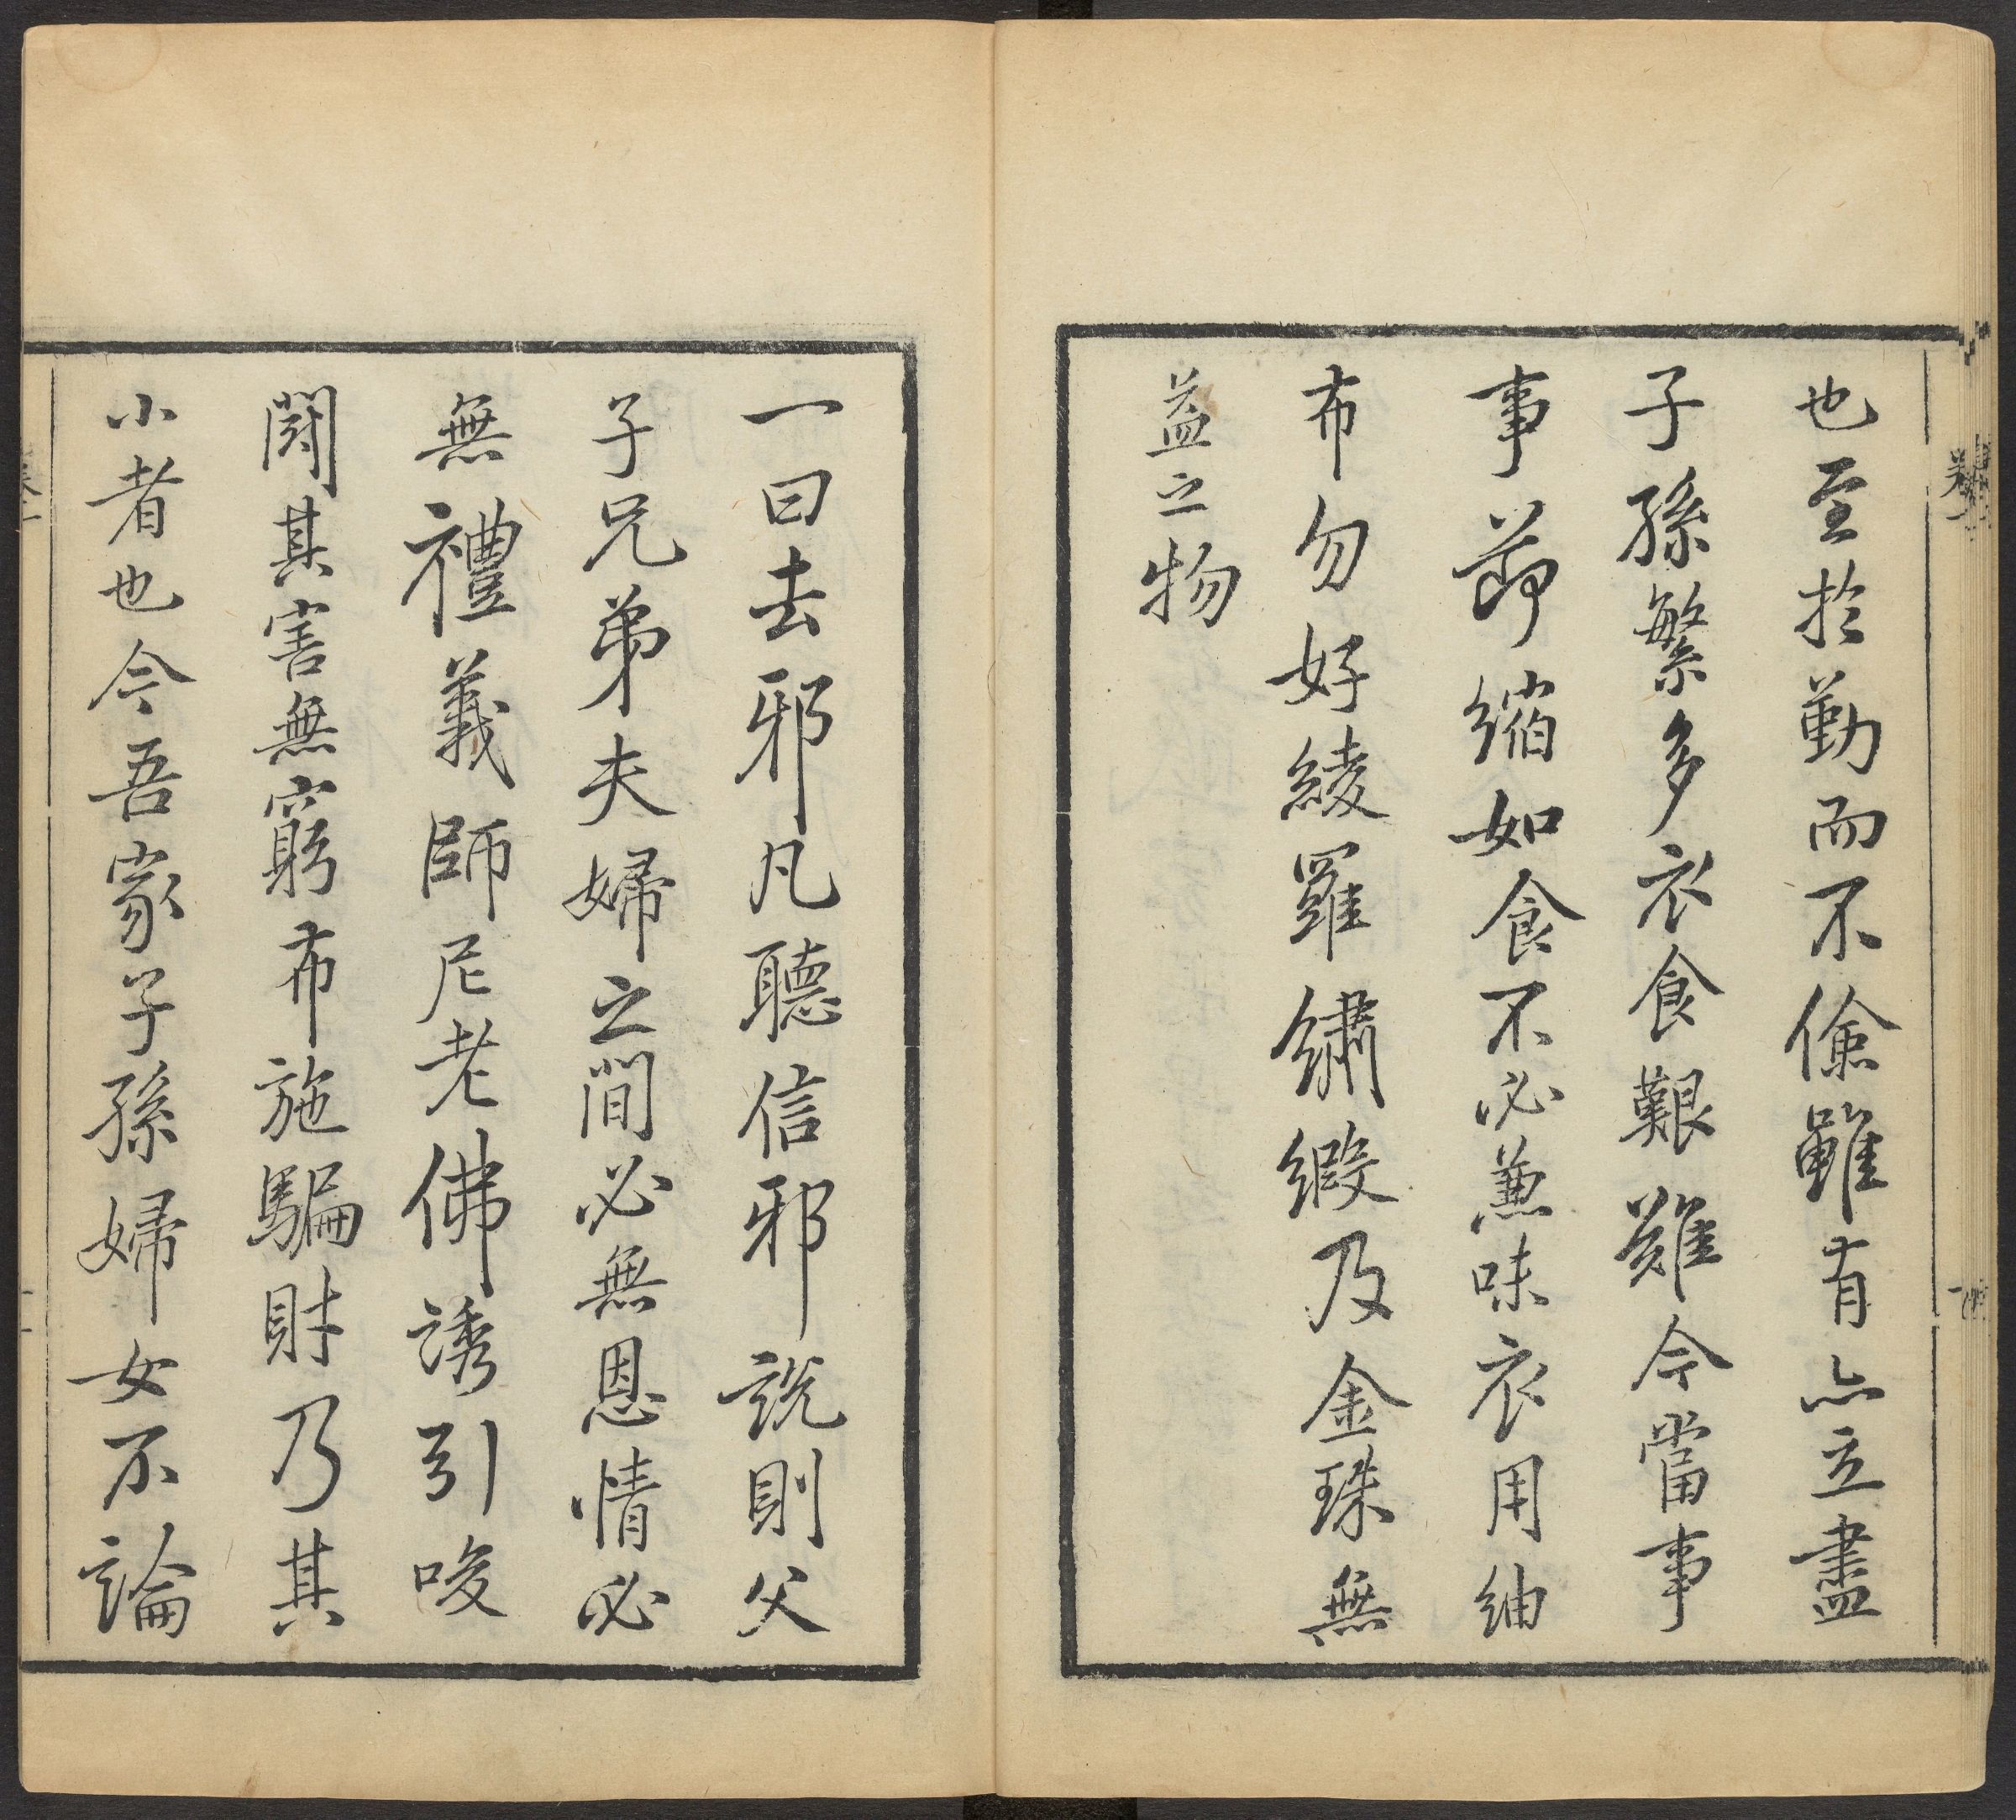 也至於勤而不儉雖有亦立盡
子孫繁多衣食艱難今當事
事莭縮如食不必兼味衣用紬
布勿好綾羅繡緞及金珠無
益之物
一曰去邪凡聽信邪說則父
子兄弟夫婦之間必無恩情必
無禮義師尼老佛誘引唆
鬪其害無窮布施騙財乃其
小者也今吾家子孫婦女不論